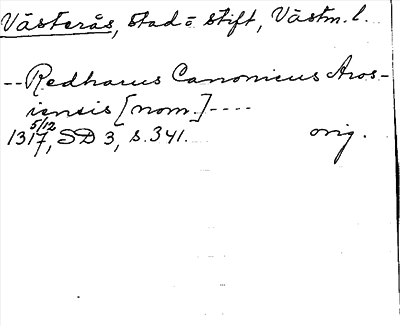 Västerås, stad o stift, Västm. l.
-- Redharus Canonicus Aros-
iensis [nom.] ----
1317 5/12, SD 3, s. 341. orig.